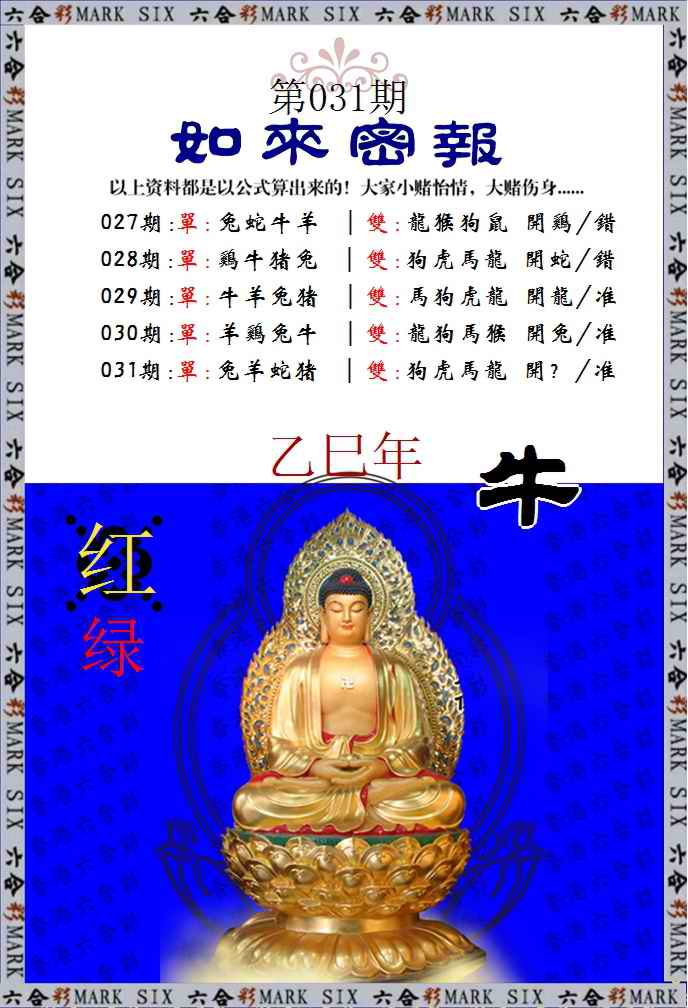 六合彩MARK SIX 六合彩MARK SIX 六合彩MARK SIX 六合彩MARK SIX 六合彩MARK SIX
第031期
如來密報
以上资料都是以公式算出来的！大家小赌怡情，大赌伤身......
027期:單:兔蛇牛羊 | 雙:龍猴狗鼠 開鷄/錯
028期:單:鷄牛猪兔 | 雙:狗虎馬龍 開蛇/錯
029期:單:牛羊兔猪 | 雙:馬狗虎龍 開龍/准
030期:單:羊鷄兔牛 | 雙:龍狗馬猴 開兔/准
031期:單:兔羊蛇猪 | 雙:狗虎馬龍 開?/准
乙巳年
牛
红
绿
六合彩MARK SIX 六合彩MARK SIX 六合彩MARK SIX 六合彩MARK SIX 六合彩MARK SIX